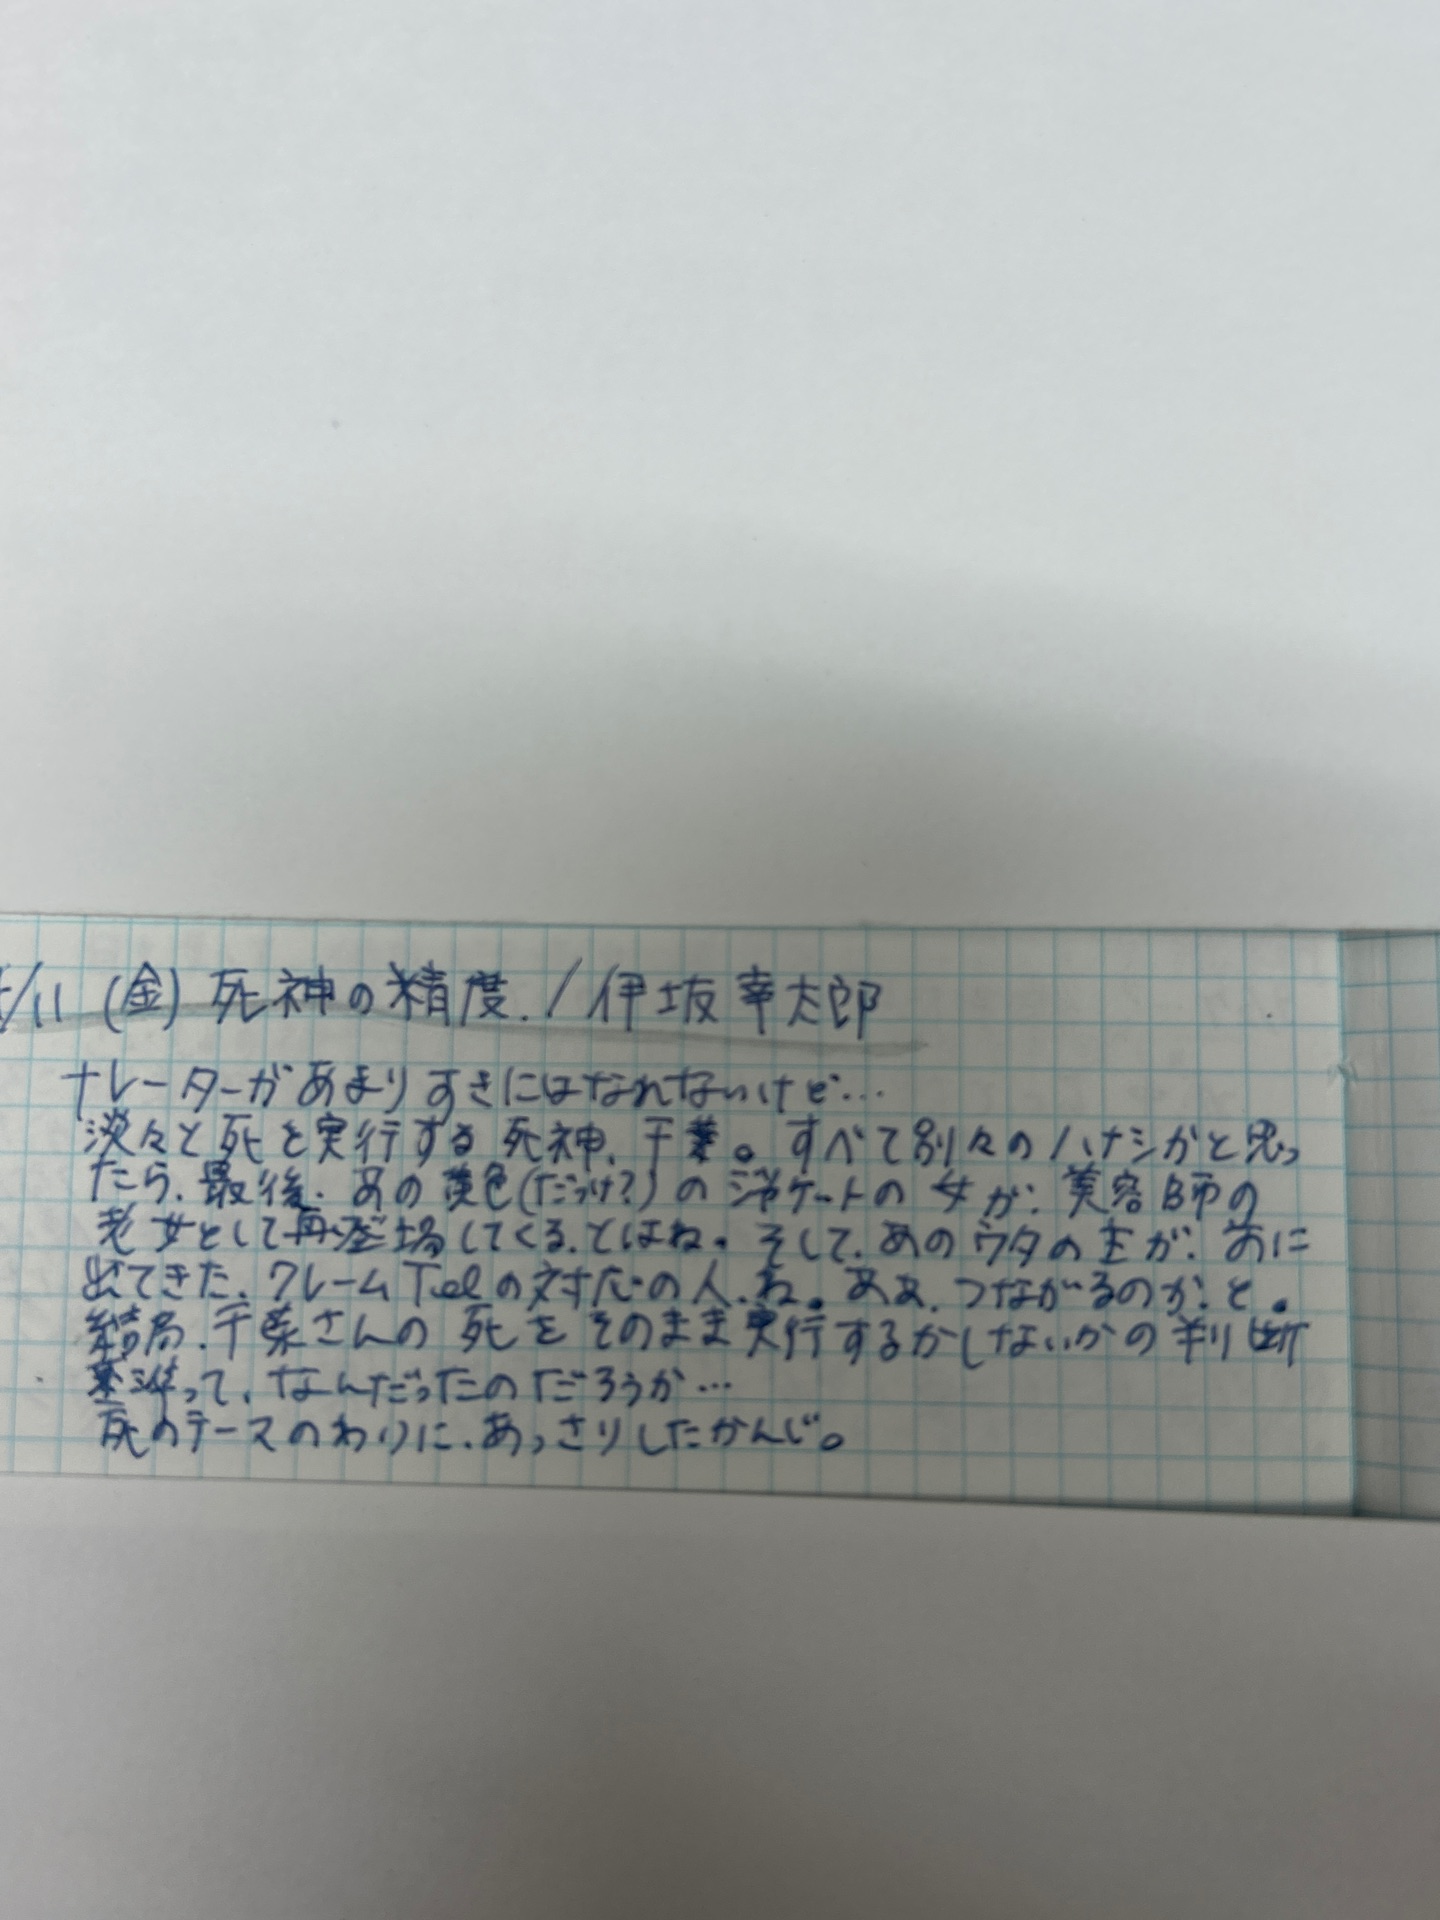 /11 (金) 死神の精度. / 伊坂幸太郎
ナレーターがあまりすきにはなれないけど…
淡々と死を実行する死神、千葉。すべて別々のハナシかと思っ
たら、最後、あの黄色(だっけ?)のジャケートの女が、美容師の
老女として再登場してくる、とはね。そして、あのウタの主が、前に
出てきた、クレームTelの対応の人、ね。ああ、つながるのか、と。
結局、千葉さんの死をそのまま実行するかしないかの判断
基準って、なんだったのだろうか…
死のテーマのわりに、あっさりしたかんじ。